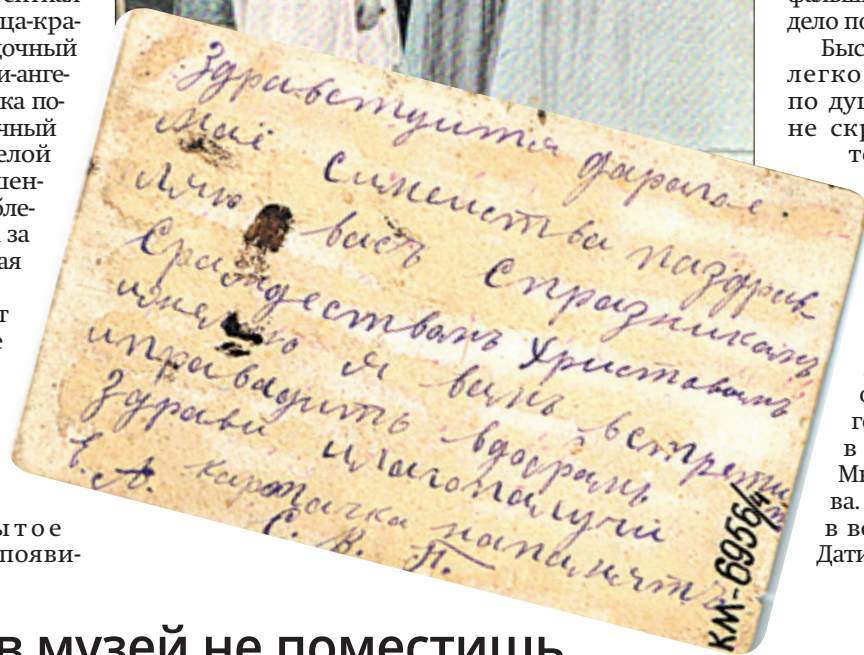 ца-кра-
дочный
и-анге-
ка по-
чный
елой
шен-
бле-
за
ая
т
е
ытое
появи-
Здравствуитя дарагае.
маё симеиства паздрав
ляю васъ спразникамъ
Сраждествамъ Христовамъ
ижелаю я вамъ встретит
ипровадитъ вдобрамъ
Здрави иглагапалучи
Е. А. Карточка напамятъ
С. В. П.
КМ-6956/4
дело по
Быс
легко
по душ
не скр
те
с
го
в
Мн
ва.
в во
Дати
в музей не поместишь